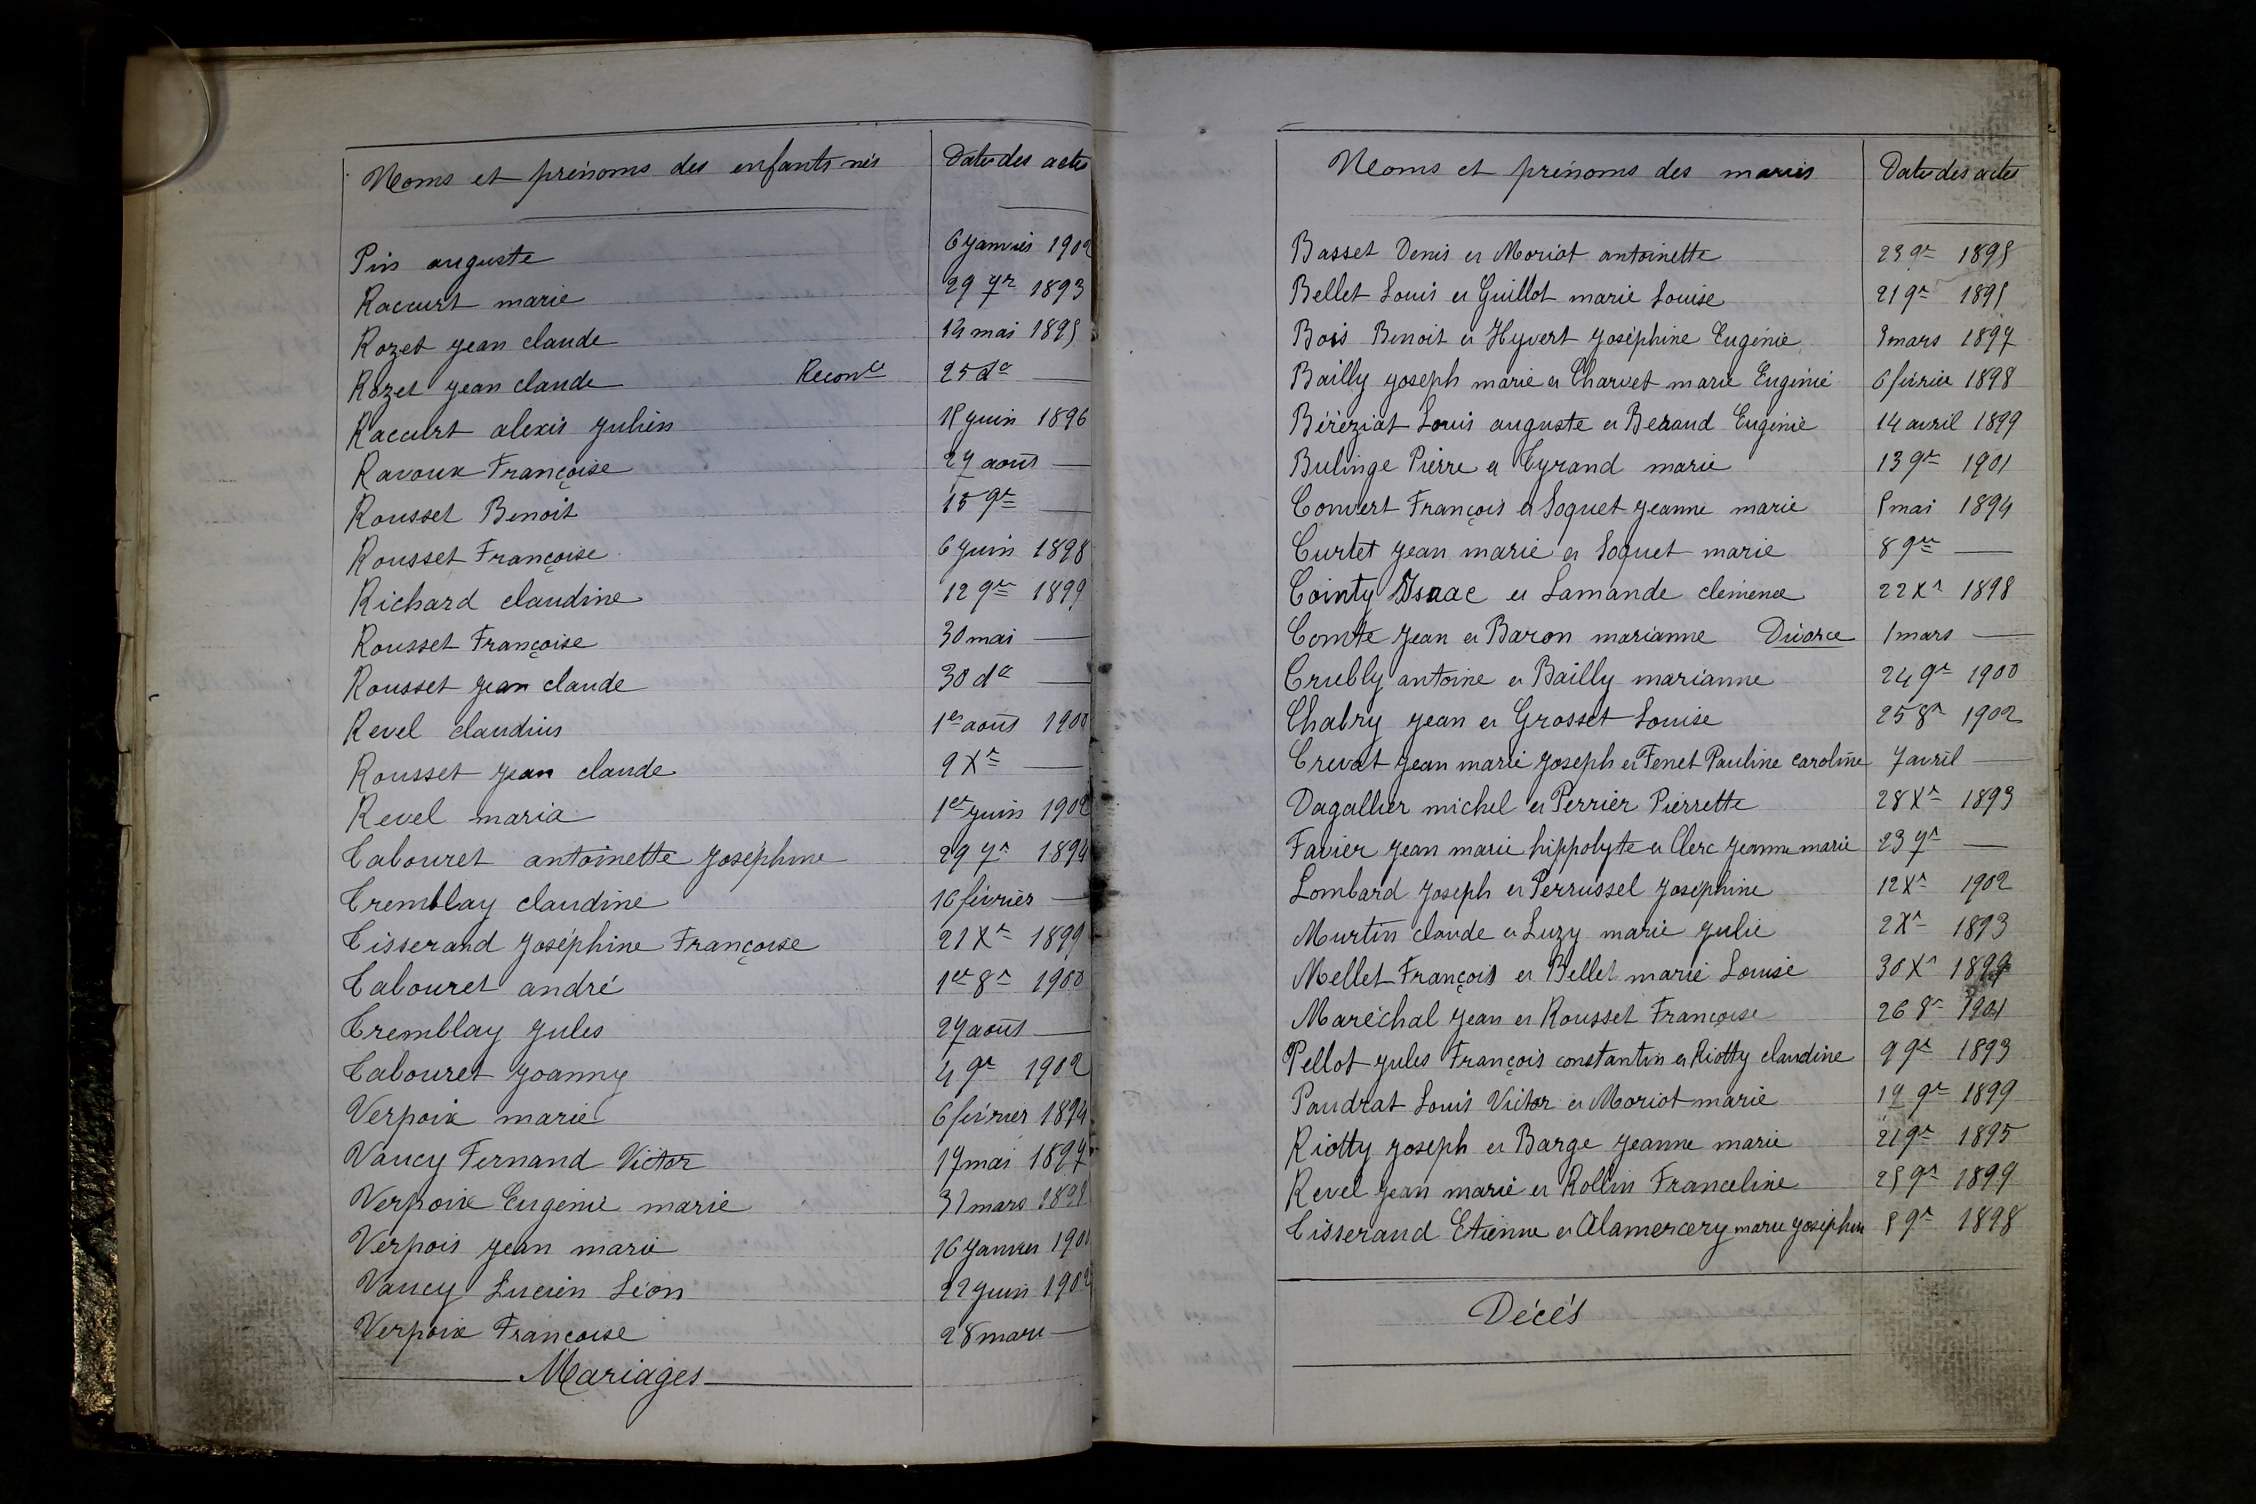 Noms et prénoms des enfants nés Dates des actes
Pin auguste 6 janvier 1902
Raccurt marie 29 7re 1893
Rozet jean claude 14 mai 1895
Rozet jean claude Reconce 25 do —
Raccurt alexis julien 18 juin 1896
Ravoux Françoise 27 août —
Rousset Benoit 15 9re —
Rousset Françoise 6 juin 1898
Richard claudine 12 9re 1899
Rousset Françoise 30 mai —
Rousset jean claude 30 do —
Revel claudius 1er août 1900
Rousset jean claude 9 Xre —
Revel maria 1er juin 1902
Tabouret antoinette joséphine 29 7re 1894
Tremblay claudine 16 février —
Tisserand joséphine Françoise 21 Xre 1899
Tabouret andré 1er 8re 1900
Tremblay jules 27 août —
Tabouret joanny 4 9re 1902
Verpoix marie 6 février 1894
Vaucy Fernand Victor 17 mai 1897
Verpoix Eugénie marie 31 mars 1898
Verpois jean marie 16 janvier
Vaucy Lucien Léon 22 juin 1902
Verpoix Françoise 28 mars —
Mariages
Noms et prénoms des mariés Dates des actes
Basset Denis et Moriot antoinette 23 9re 1895
Bellet Louis et Guillot marie Louise 21 9re 1895
Bois Benoit et Hyvert joséphine Eugénie mars 1897
Bailly joseph marie et Charvet marie Eugénie 6 février 1898
Béréziat Louis auguste et Beraud Eugénie 14 avril 1899
Bulinge Pierre et Cyrand marie 13 9re 1901
Convert François et Soquet jeanne marie mai 1894
Curtet jean marie et Soquet marie 8 9re —
Cointy Isaac et Lamande clémence 22 Xre 1898
Comte jean et Baron marianne Divorce 1 mars —
Crubly antoine et Bailly marianne 24 9re 1900
Chabry jean et Grosset Louise 25 8re 1902
Crevat jean marie joseph et Fenet Pauline caroline 7 avril —
Dagallier michel et Perrier Pierrette 28 Xre 1893
Favier jean marie hippolyte et Clerc jeanne marie 23 7re —
Lombard joseph et Perrussel joséphine 12 Xre 1902
Murtin claude et Luzy marie julie 2 Xre 1893
Mellet François et Bellet marie Louise 30 Xre
Maréchal jean et Rousset Françoise 26 8re 1901
Pellot jules François constantin et Riotty claudine 9 9re 1893
Paudrat Louis Victor et Moriot marie 12 9re 1899
Riotty joseph et Barge jeanne marie 21 9re 1895
Revel jean marie et Rollin Franceline 25 9re 1899
Tisserand Etienne et Alamercery marie joséphine 5 9re 1898
Décés